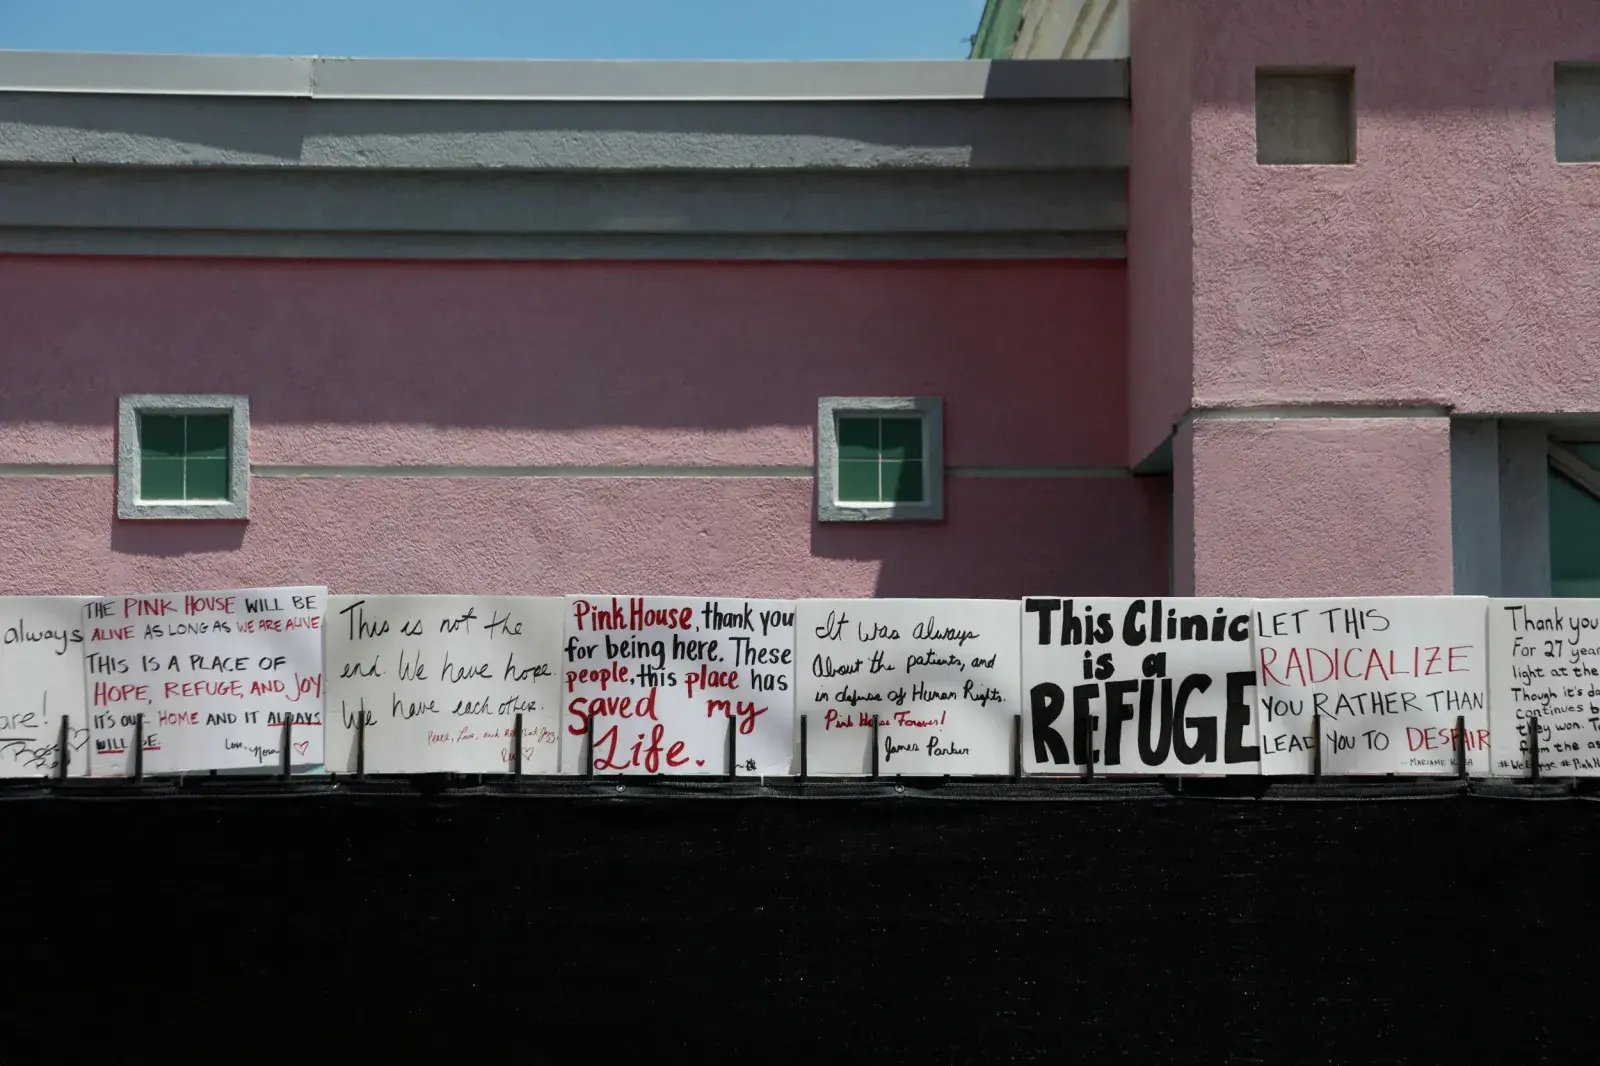 always
are!
THE PINK HOUSE WILL BE
ALIVE AS LONG AS WE ARE ALIVE.
THIS IS A PLACE OF
HOPE, REFUGE, AND JOY.
IT'S OUR HOME AND IT ALWAYS
WILL BE.
Love, Nona
This is not the
end. We have hope.
We have each other.
Peace, Love, and
Pink House, thank you
for being here. These
people, this place has
saved my
Life.
It was always
About the patients, and
in defense of Human Rights.
Pink House Forever!
James Parker
This Clinic
is a
REFUGE
LET THIS
RADICALIZE
YOU RATHER THAN
LEAD YOU TO DESPAIR
- MARIAME KABA
Thank you
For 27 year
light at the
Though it's da
continues b
they won. T
from the as
#WeEngage #PinkH